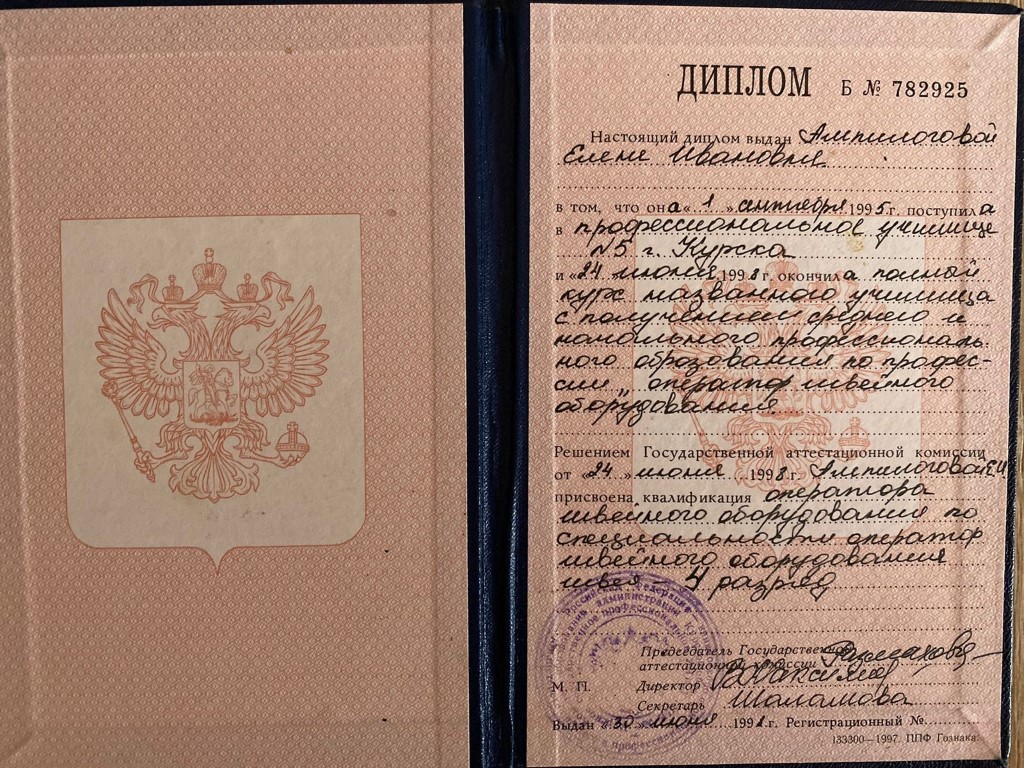 ДИПЛОМ Б № 782925
Настоящий диплом выдан Ампилоговой
Елене Ивановне
в том, что она «1» сентября 1995 г. поступила
в профессиональное училище
N5 г. Курска
и «24» июня 1998 г. окончила полный
курс названного училища
с получением среднего и
начального профессиональ-
ного образования по профес-
сии „оператор швейного
оборудования.
Решением Государственной аттестационной комиссии
от «24» июня 1998 г. Ампилоговой Е.И.
присвоена квалификация оператора
швейного оборудования по
специальности оператор
швейного оборудования
швея – 4 разряд
Председатель Государственной
аттестационной комиссии
М. П. Директор
Секретарь Шаламова
Выдан «30» июня 1998 г. Регистрационный №
133300—1997. ППФ Гознака.